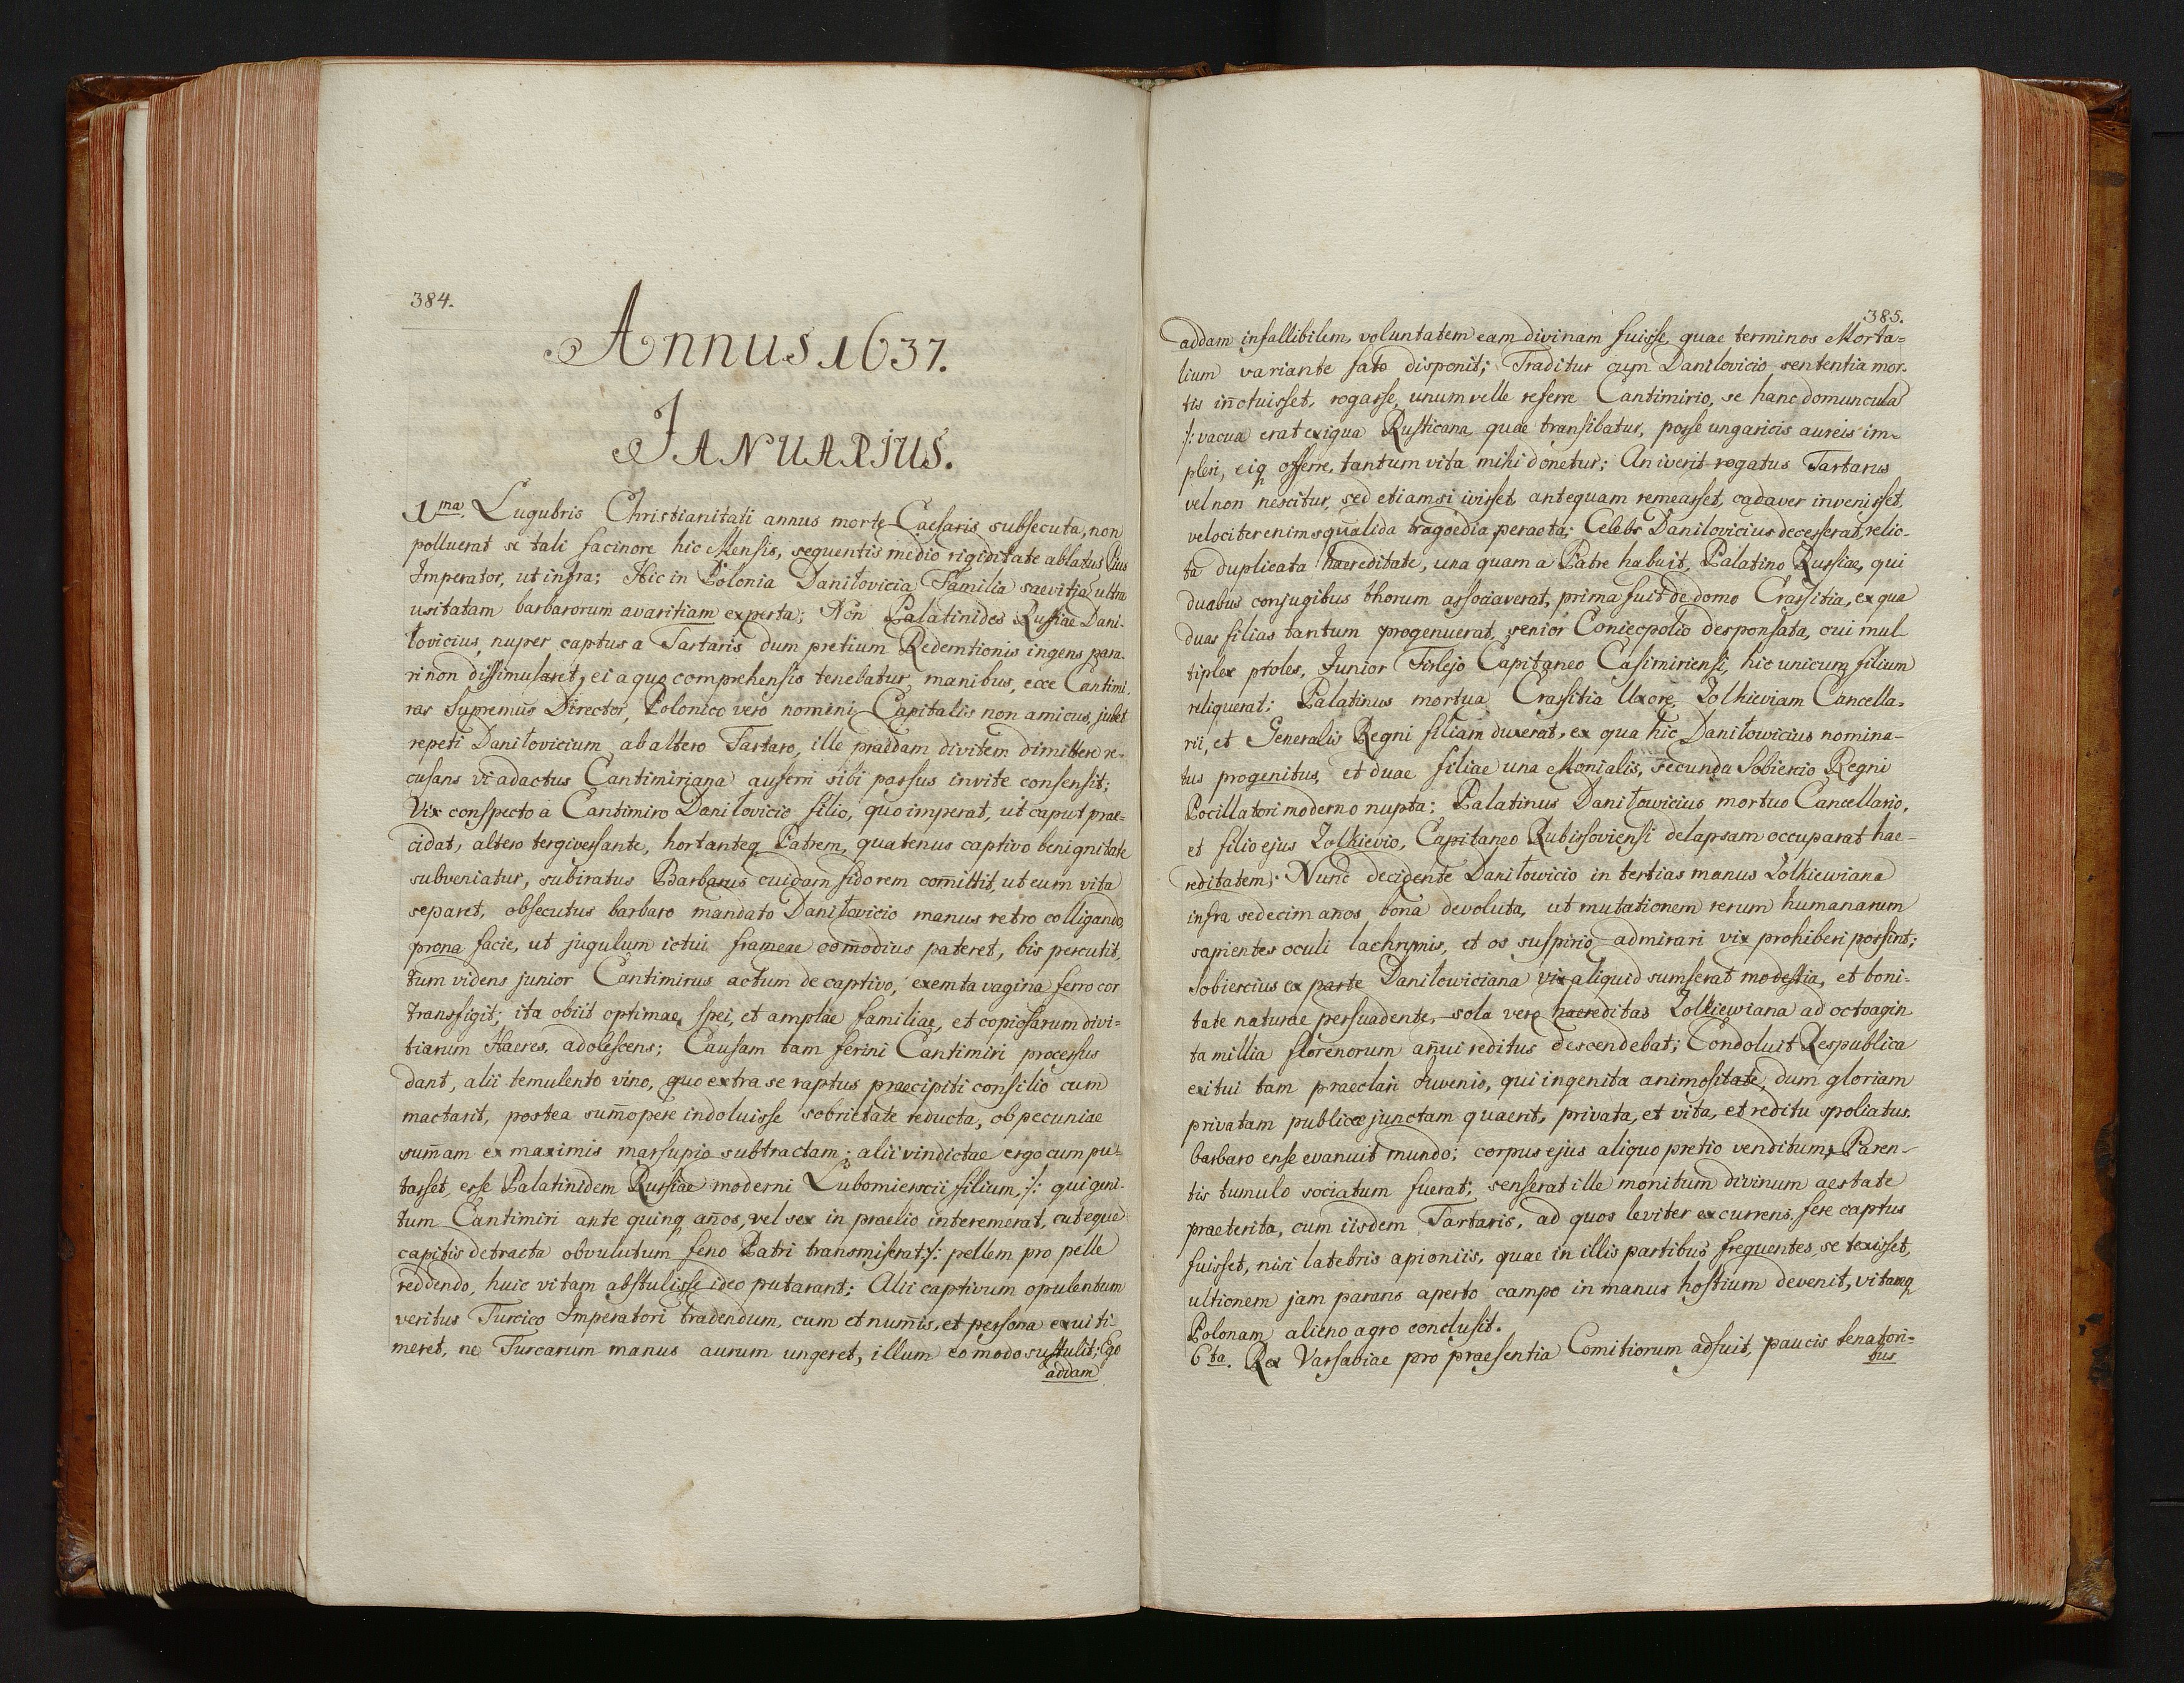 384.
Annus 1637.
JANUARIUS.
1ma. Lugubris Christianitati annus morte Caesaris subsecuta, non
polluerat se tali facinore hic Mensis, sequentis medio rigiditate ablatus Pius
Imperator, ut infra; Hic in Polonia Daniłovicia Familia saevitia ultra
usitatam barbarorum avaritiam experta; Non Palatinides Russiae Dani-
łovicius, nuper captus a Tartaris dum pretium Redemtionis ingens para-
ri non dissimularet, ei a quo comprehensio tenebatur, manibus, ecce Cantimi-
rar Supremus Director, Polonico vero nomini Capitalis non amicus, jubet
repeti Daniłovicium ab altero Tartaro, ille praedam divitem dimittere re-
cusans vi adactus Cantimiriana auferri sibi passus invite consensit;
Vix conspecto a Cantimiro Daniłovicio filio, quo imperat, ut caput prae=
cidat, altero tergiversante, hortanteq Patrem, quatenus captivo benignitate
subveniatur, subiratus Barbarus cuidam fido rem com̄ittit, ut eum vita
separet, obsecutus barbaro mandato Daniłovicio manus retro colligando,
prona facie, ut jugulum ictui frameae com̄odius pateret, bis percutit,
tum videns junior Cantimirus actum de captivo, exemta vagina ferro cor
transfigit; ita obiit optimae spei, et amplae familiae, et copiosarum divi=
tiarum Haeres, adolescens; Causam tam ferini Cantimiri processus
dant, alii temulento vino, quo extra se raptus praecipiti consilio eum
mactarit, postea sum̄opere indoluisse sobrietate reducta, ob pecuniae
sum̄am ex maximis marsupio subtractam; alii vindictae ergo cum pu=
tasset, esse Palatinidem Russiae moderni Lubomierscii filium, /: qui geni-
tum Cantimiri ante quinq an̄os, vel sex in praelio interemerat, cuteque
capitis detracta obvulutum feno Patri transmiserat :/ pellem pro pelle
reddendo, huic vitam abstulisse ideo putarant; Alii captivum opulentum
veritus Turcico Imperatori tradendum, cum et num̄is, et persona exui ti-
meret, ne Turcarum manus aurum ungeret, illum eo modo sustulit; Ego
addam
385.
addam infallibilem voluntatem eam divinam fuisse, quae terminos Morta=
lium variante fato disponit; Traditur cum Daniłovicio sententia mor-
tis in̄otuisset, rogasse, unum velle referre Cantimirio, se hanc domuncula
/: vacua erat exigua Rusticana, quae transibatur, posse ungaricis aureis im-
pleri, eiq offerre, tantum vita mihi donetur; An iverit rogatus Tartarus
vel non nescitur, sed etiamsi ivisset antequam remeasset, cadaver invenisset,
velociter enim squalida tragoedia peracta; Celebs Danilovicius decesserat, relic-
ta duplicata haereditate, una quam a Patre habuit, Palatino Russiae, qui
duabus conjugibus thorum associaverat, prima fuit de domo Crassitia, ex qua
duas filias tantum progenuerat, senior Coniecpolio desponsata, cui mul-
tiplex proles, Junior Firlejo Capitaneo Casimiriensi, hic unicum filium
reliquerat; Palatinus mortua Crassitia Uxore, Zolkieviam Cancella-
rii, et Generalis Regni filiam duxerat, ex qua hic Daniłowicius nomina-
tus progenitus, et duae filiae una Monialis, secunda Sobiescio Regni
Pocillatori moderno nupta; Palatinus Daniłowicius mortuo Cancellario,
et filio ejus Zolkievio, Capitaneo Rubissoviensi delapsam occuparat hae-
reditatem; Nunc decidente Daniłowicio in tertias manus Zolkiewiana
infra sedecim anos bona devoluta, ut mutationem rerum humanarum
sapientes oculi lachrymis, et os suspirio admirari vix prohiberi possint;
Sobiescius ex parte Daniłowiciana vix aliquid sumserat modestia, et boni-
tate naturae persuadente, sola vero haereditas Zolkiewiana ad octoagin
ta millia florenorum an̄ui reditus descendebat; Condoluit Respublica
exitui tam praeclari Iuvenis, qui ingenita animositate, dum gloriam
privatam publicae junctam quaerit, privata, et vita, et reditu spoliatus,
barbaro ense evanuit mundo; corpus ejus aliquo pretio venditum, Paren-
tis tumulo sociatum fuerat; senserat ille monitum divinum aestate
praeterita, cum iisdem Tartaris, ad quos leviter excurrens, fere captus
fuisset, nisi latebris apioniis, quae in illis partibus frequentes, se texisset,
ultionem jam parans aperto campo in manus hostium devenit, vitamq
Polonam alieno agro conclusit.
6ta. Rex Varsaviae pro praesentia Comitiorum adfuit, paucis Senatori-
bus